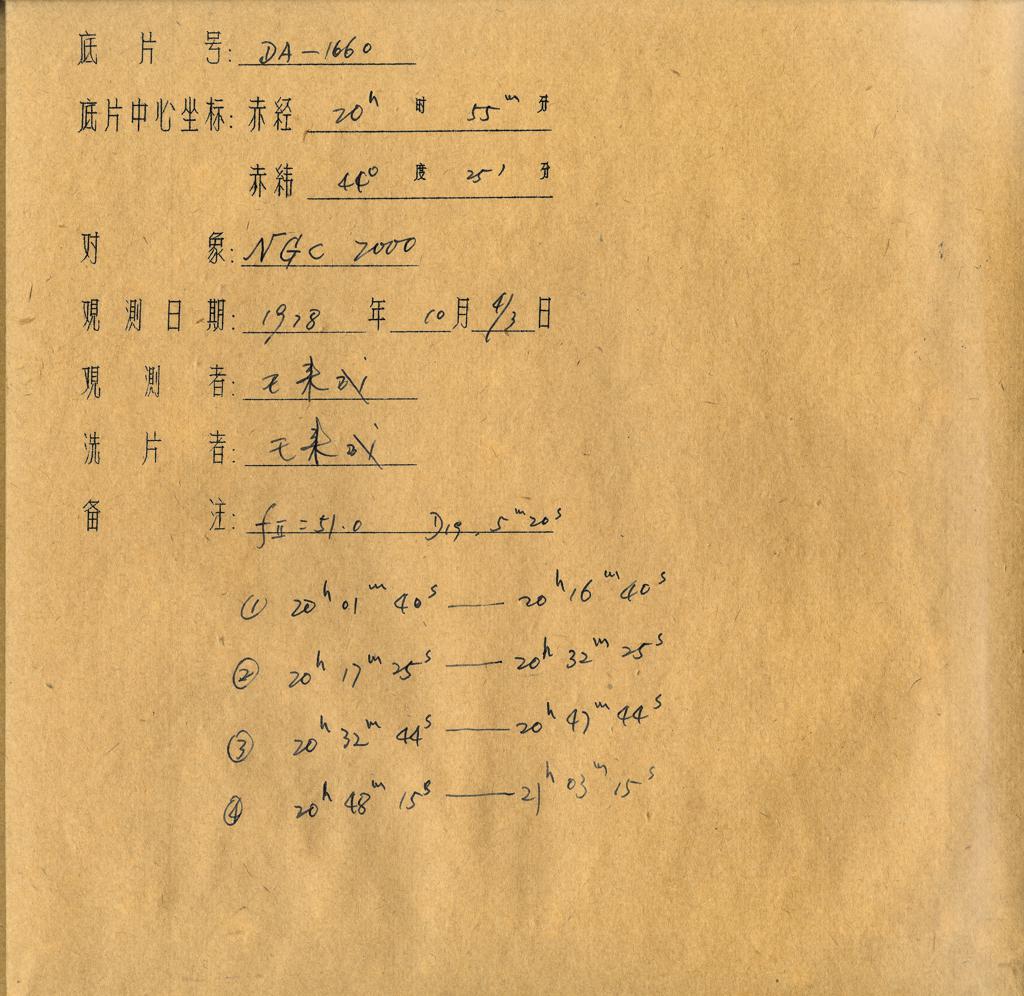 底片号: DA-1660
底片中心坐标: 赤経 20ʰ 时 55ᵐ 分
赤緯 44° 度 25′ 分
对象: NGC 7000
观测日期: 1978 年 10 月 4/3 日
观测者: 王来
洗片者: 王来
备注: fⅡ=51.0 D19. 5ᵐ20ˢ
① 20ʰ01ᵐ40ˢ — 20ʰ16ᵐ40ˢ
② 20ʰ17ᵐ25ˢ — 20ʰ32ᵐ25ˢ
③ 20ʰ32ᵐ44ˢ — 20ʰ47ᵐ44ˢ
④ 20ʰ48ᵐ15ˢ — 21ʰ03ᵐ15ˢ